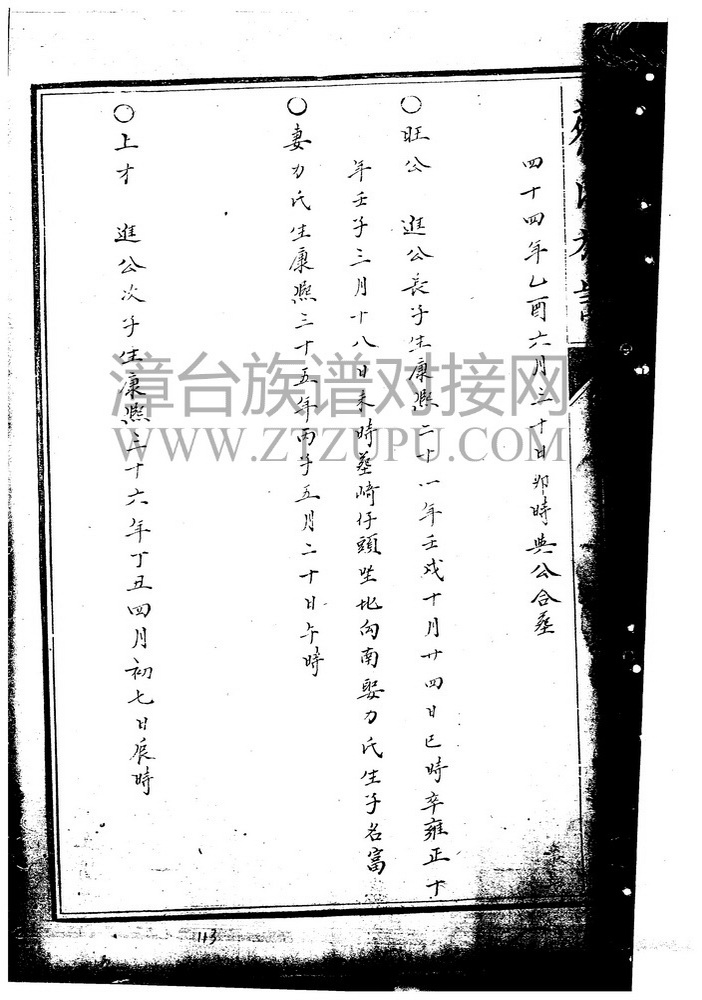 四十四年乙酉六月三十日卯時與公合墓
○旺公 進公長子生康熙二十一年壬戌十月廿四日巳時卒雍正十
年壬子三月十八日未時墓崎仔頭坐北向南娶力氏生子名富
○妻力氏生康熙三十五年丙子五月二十日午時
○上才 進公次子生康熙三十六年丁丑四月初七日辰時
漳台族谱对接网
WWW.ZTZUPU.COM
113